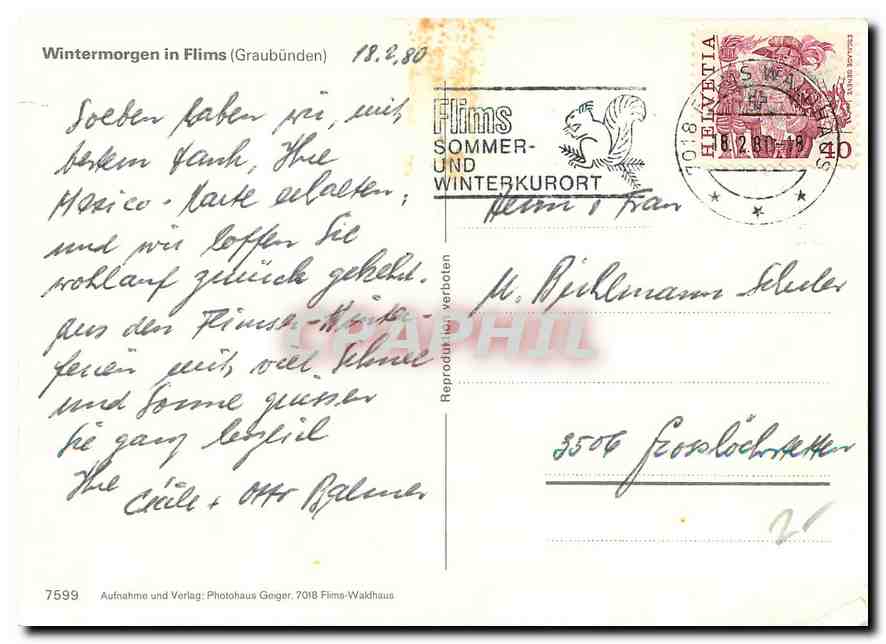 Wintermorgen in Flims (Graubünden) 18.2.80
Soeben haben wir, mit
bestem Dank, Ihre
Mexico-Karte erhalten,
und wir hoffen Sie
wohlauf zurück gekehrt.
Aus den Flimser-Winter-
ferien mit viel Schnee
und Sonne grüssen
Sie ganz herzlich
Ihre Cécile + Otto Balmer
7599 Aufnahme und Verlag: Photohaus Geiger, 7018 Flims-Waldhaus
Reproduktion verboten
Flims
SOMMER-
UND
WINTERKURORT
7018 FLIMS WALDHAUS
18.2.80-18
HELVETIA
ESCALADE GENEVE
40
Herrn & Frau
M. Bichlmann-Schuler
3506 Grosshöchstetten
CPAPHIL